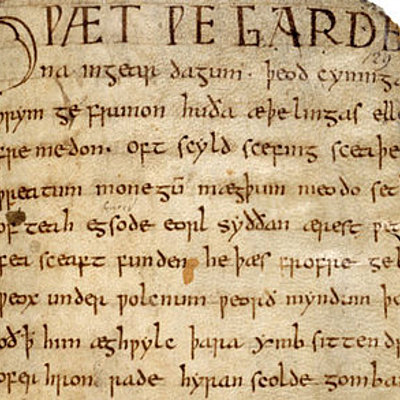 HǷÆT ǷE GARDE
129
na ingear dagum · þeod cyninga
þrym ge frunon huða æþelingas elle
fre medon. oft scyld scefing sceaþe
þreatum monegū mægþum meodo set
of teah egsode eorl syððan ærest ƿe
fea sceaft funden he þæs frofre ge
ƿeox under ƿolcnum ƿeorð myndum þ
oð ꝥ him æghƿylc þara ymb sittend
ofer hron rade hyran scolde gomba